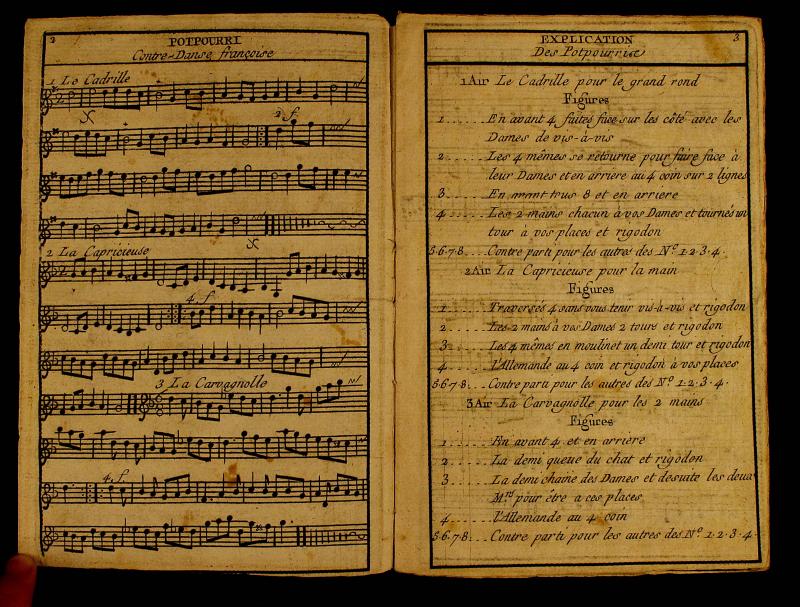 2
POTPOURRI
Contre-Danse françoise
1 Le Cadrille
2 f
2 La Capricieuse
4 f
3 La Carvagnolle
4 f
3
EXPLICATION
Des Potpourris
1 Air Le Cadrille pour le grand rond
Figures
1...... En avant 4 faites face sur les côté avec les
Dames de vis-à-vis
2...... Les 4 mêmes se retourne pour faire face à
leur Dames et en arriere au 4 coin sur 2 lignes
3...... En avant tous 8 et en arriere
4...... Les 2 mains chacun à vos Dames et tournés un
tour à vos places et rigodon
5·6·7·8... Contre parti pour les autres des Nº 1·2·3·4·
2 Air La Capricieuse pour la main
Figures
1...... Traversés 4 sans vous tenir vis-à-vis et rigodon
2...... Les 2 mains à vos Dames 2 tours et rigodon
3...... Les 4 mêmes en moulinet un demi tour et rigodon
4...... L'Allemande au 4 coin et rigodon à vos places
5·6·7·8... Contre parti pour les autres des Nº 1·2·3·4·
3 Air La Carvagnolle pour les 2 mains
Figures
1...... En avant 4 et en arriere
2...... La demi queue du chat et rigodon
3...... La demi chaine des Dames et desuite les deux
M.rs pour être a ces places
4...... L'Allemande au 4 coin
5·6·7·8... Contre parti pour les autres des Nº 1·2·3·4·